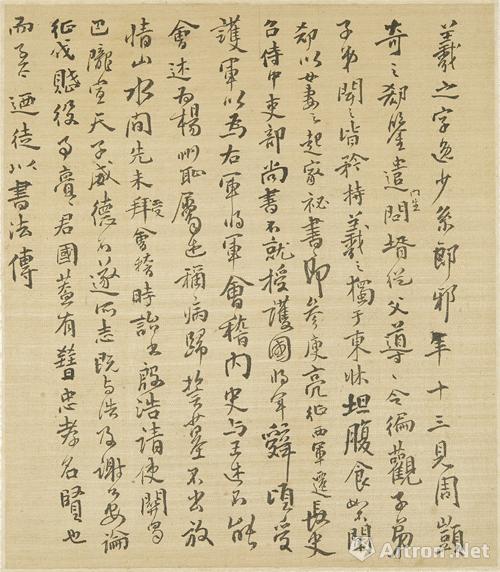 羲之字逸少系郎邪年十三見周顗
奇之郗鑒遣門生問壻從父導〻令徧觀子弟
子弟聞之皆矜持羲之獨于東牀坦腹食如不聞
郗以女妻之起家祕書郎參庾亮征西軍遷長史
召侍中吏部尚書不就授護國將軍辭頃受
護軍以為右軍將軍會稽內史与王述不能
會述為楊州恥屬述稱病歸誓墓不出放
情山水間先未拜受會稽時詒書殷浩請使關蜀
巴隴宣天子威德不遂所志既与浩及謝萬論
征伐賦役事君國蓋有忠孝名賢也
而迺徒以書法傳
Artron.Net